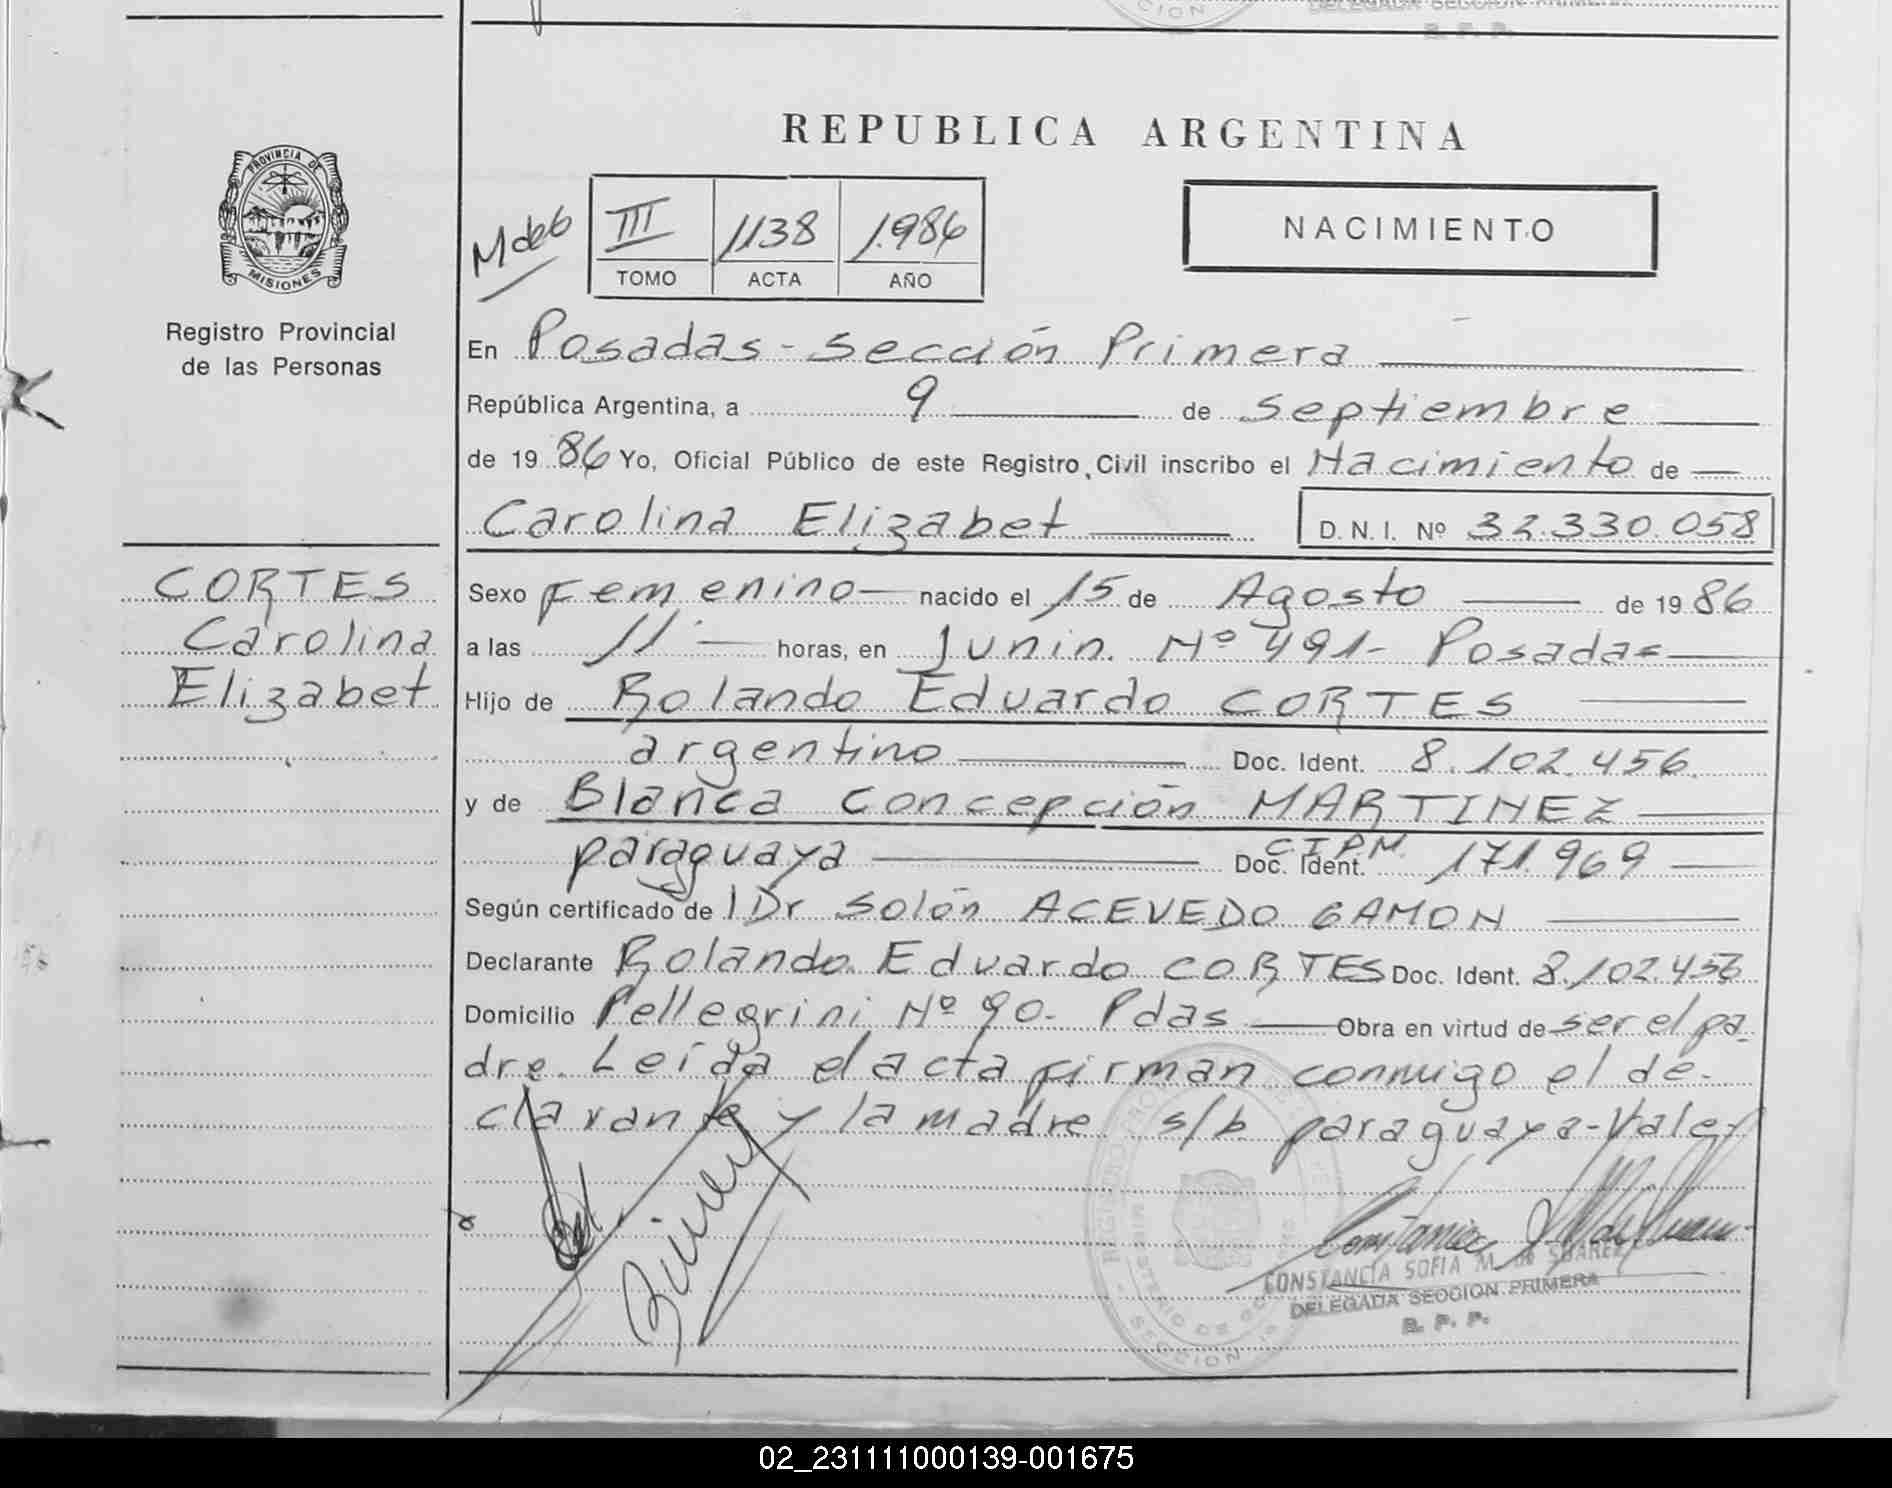 CION
DELEGADA SECCION PRIMERA
R. P. P.
REPUBLICA ARGENTINA
PROVINCIA DE
MISIONES
Registro Provincial
de las Personas
III 1138 1.986
TOMO ACTA AÑO
NACIMIENTO
En Posadas - Sección Primera
República Argentina, a 9 de Septiembre
de 19 86 Yo, Oficial Público de este Registro Civil inscribo el Nacimiento de
Carolina Elizabet D. N. I. Nº 32.330.058
CORTES
Carolina
Elizabet
Sexo Femenino nacido el 15 de Agosto de 19 86
a las 11 horas, en Junin. Nº 491- Posadas
Hijo de Rolando Eduardo CORTES
argentino Doc. Ident. 8.102.456.
y de Blanca Concepción MARTINEZ
paraguaya Doc. Ident. C.I.P.M. 171.969
Según certificado de l Dr Solón ACEVEDO GAMON
Declarante Rolando Eduardo CORTES Doc. Ident. 8.102.456
Domicilio Pellegrini Nº 90- Pdas Obra en virtud de ser el pa
dre. Leída el acta firman conmigo el de-
clarante y la madre s/b paraguaya-Vale-
CONSTANCIA SOFIA M. de SUAREZ
DELEGADA SECCION PRIMERA
R. P. P.
SECCION
02_231111000139-001675